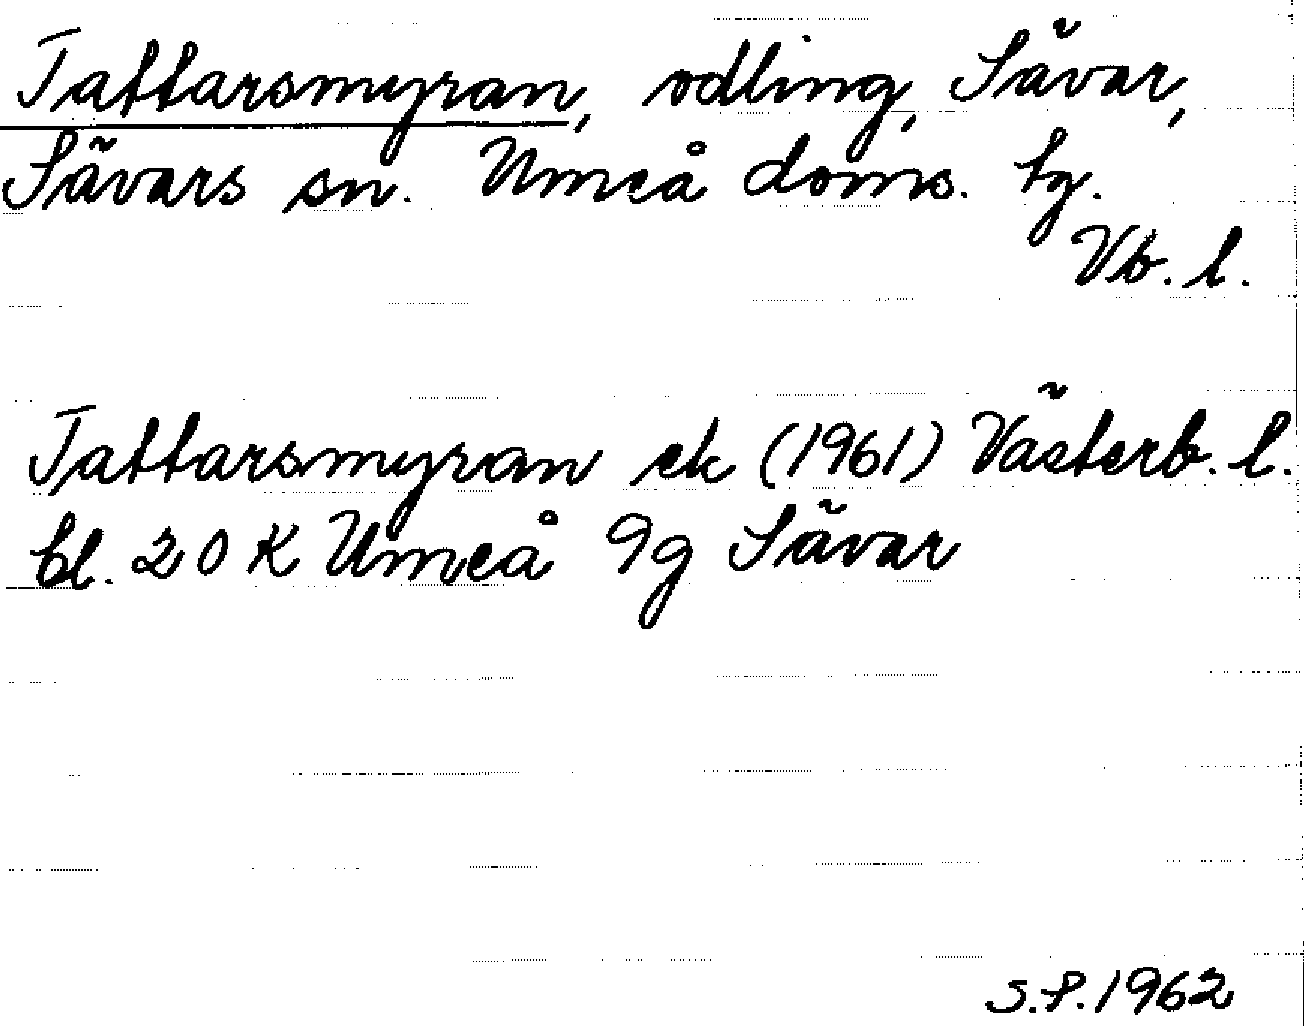 Tattarsmyran, odling, Sävar,
Sävars sn. Umeå doms. tg.
Vb. l.
Tattarsmyran ek (1961) Västerb. l.
bl. 20 K Umeå 9g Sävar
S.P. 1962